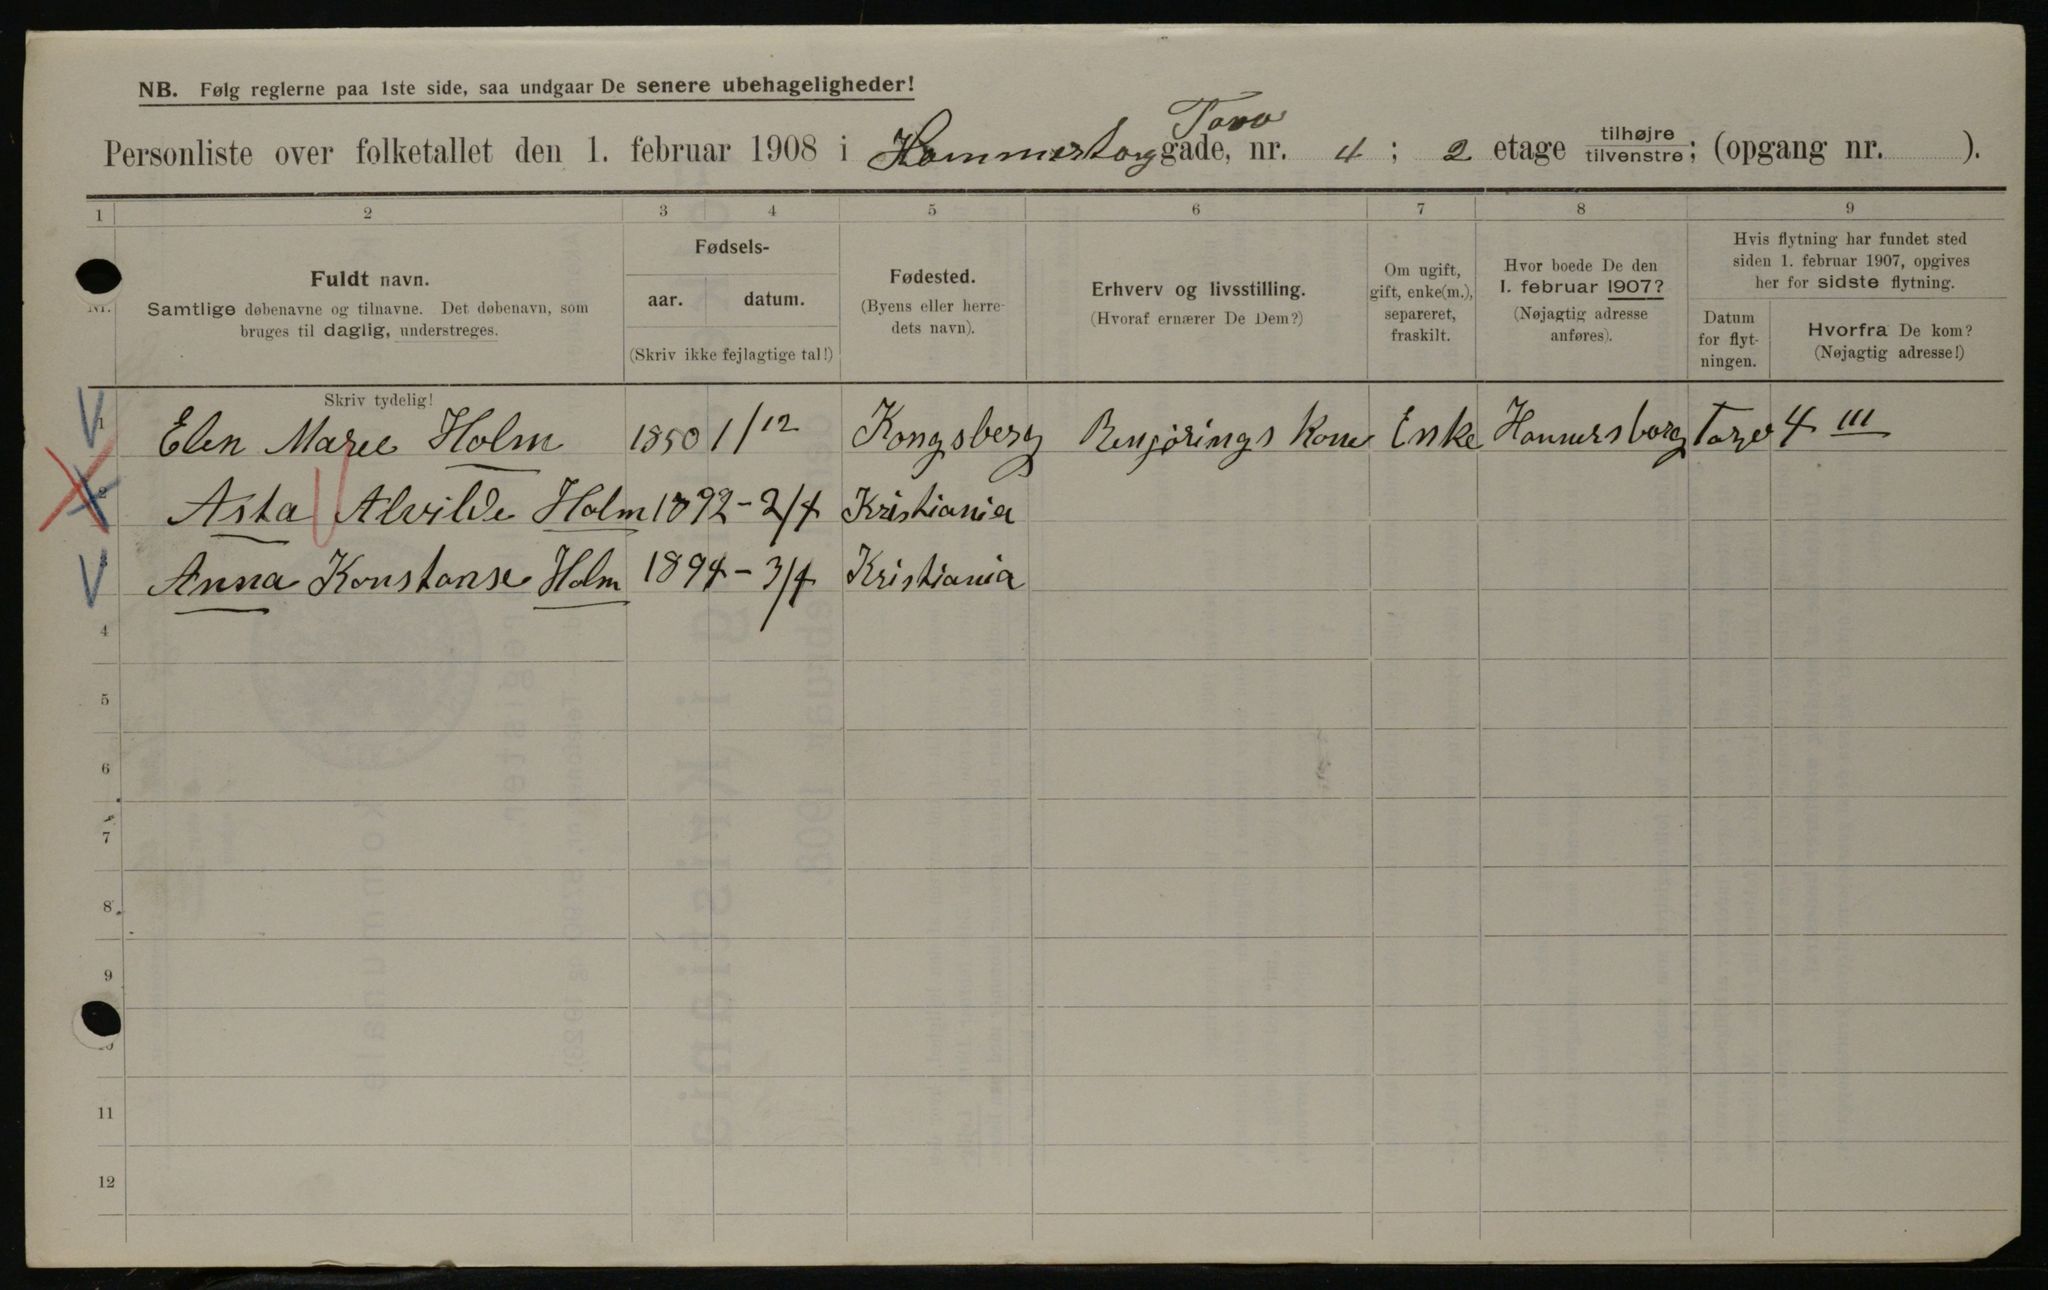 NB. Følg reglerne paa 1ste side, saa undgaar De senere ubehageligheder!
Personliste over folketallet den 1. februar 1908 i gade, nr. 4; 2 etage tilhøjre tilvenstre; (opgang nr. ).
1 2 3 4 5 6 7 8 9
Nr.
Fuldt navn.
Samtlige døbenavne og tilnavne. Det døbenavn, som
bruges til daglig, understreges.
Skriv tydelig!
Fødsels-
aar. datum.
(Skriv ikke fejlagtige tal!)
Fødested.
(Byens eller herre-
dets navn).
Erhverv og livsstilling.
(Hvoraf ernærer De Dem?)
Om ugift,
gift, enke(m.),
separeret,
fraskilt.
Hvor boede De den
1. februar 1907?
(Nøjagtig adresse
anføres).
Hvis flytning har fundet sted
siden 1. februar 1907, opgives
her for sidste flytning.
Datum
for flyt-
ningen.
Hvorfra De kom?
(Nøjagtig adresse!)
1 Elen Marie Holm 1850 1/12 Kongsberg Rengjørings Kone Enke Hammersborg Torv 4 III
2 Asta Alvilde Holm 1892 - 2/4 Kristiania
3 Anna Konstanse Holm 1894 - 3/4 Kristiania
4
5
6
7
8
9
10
11
12